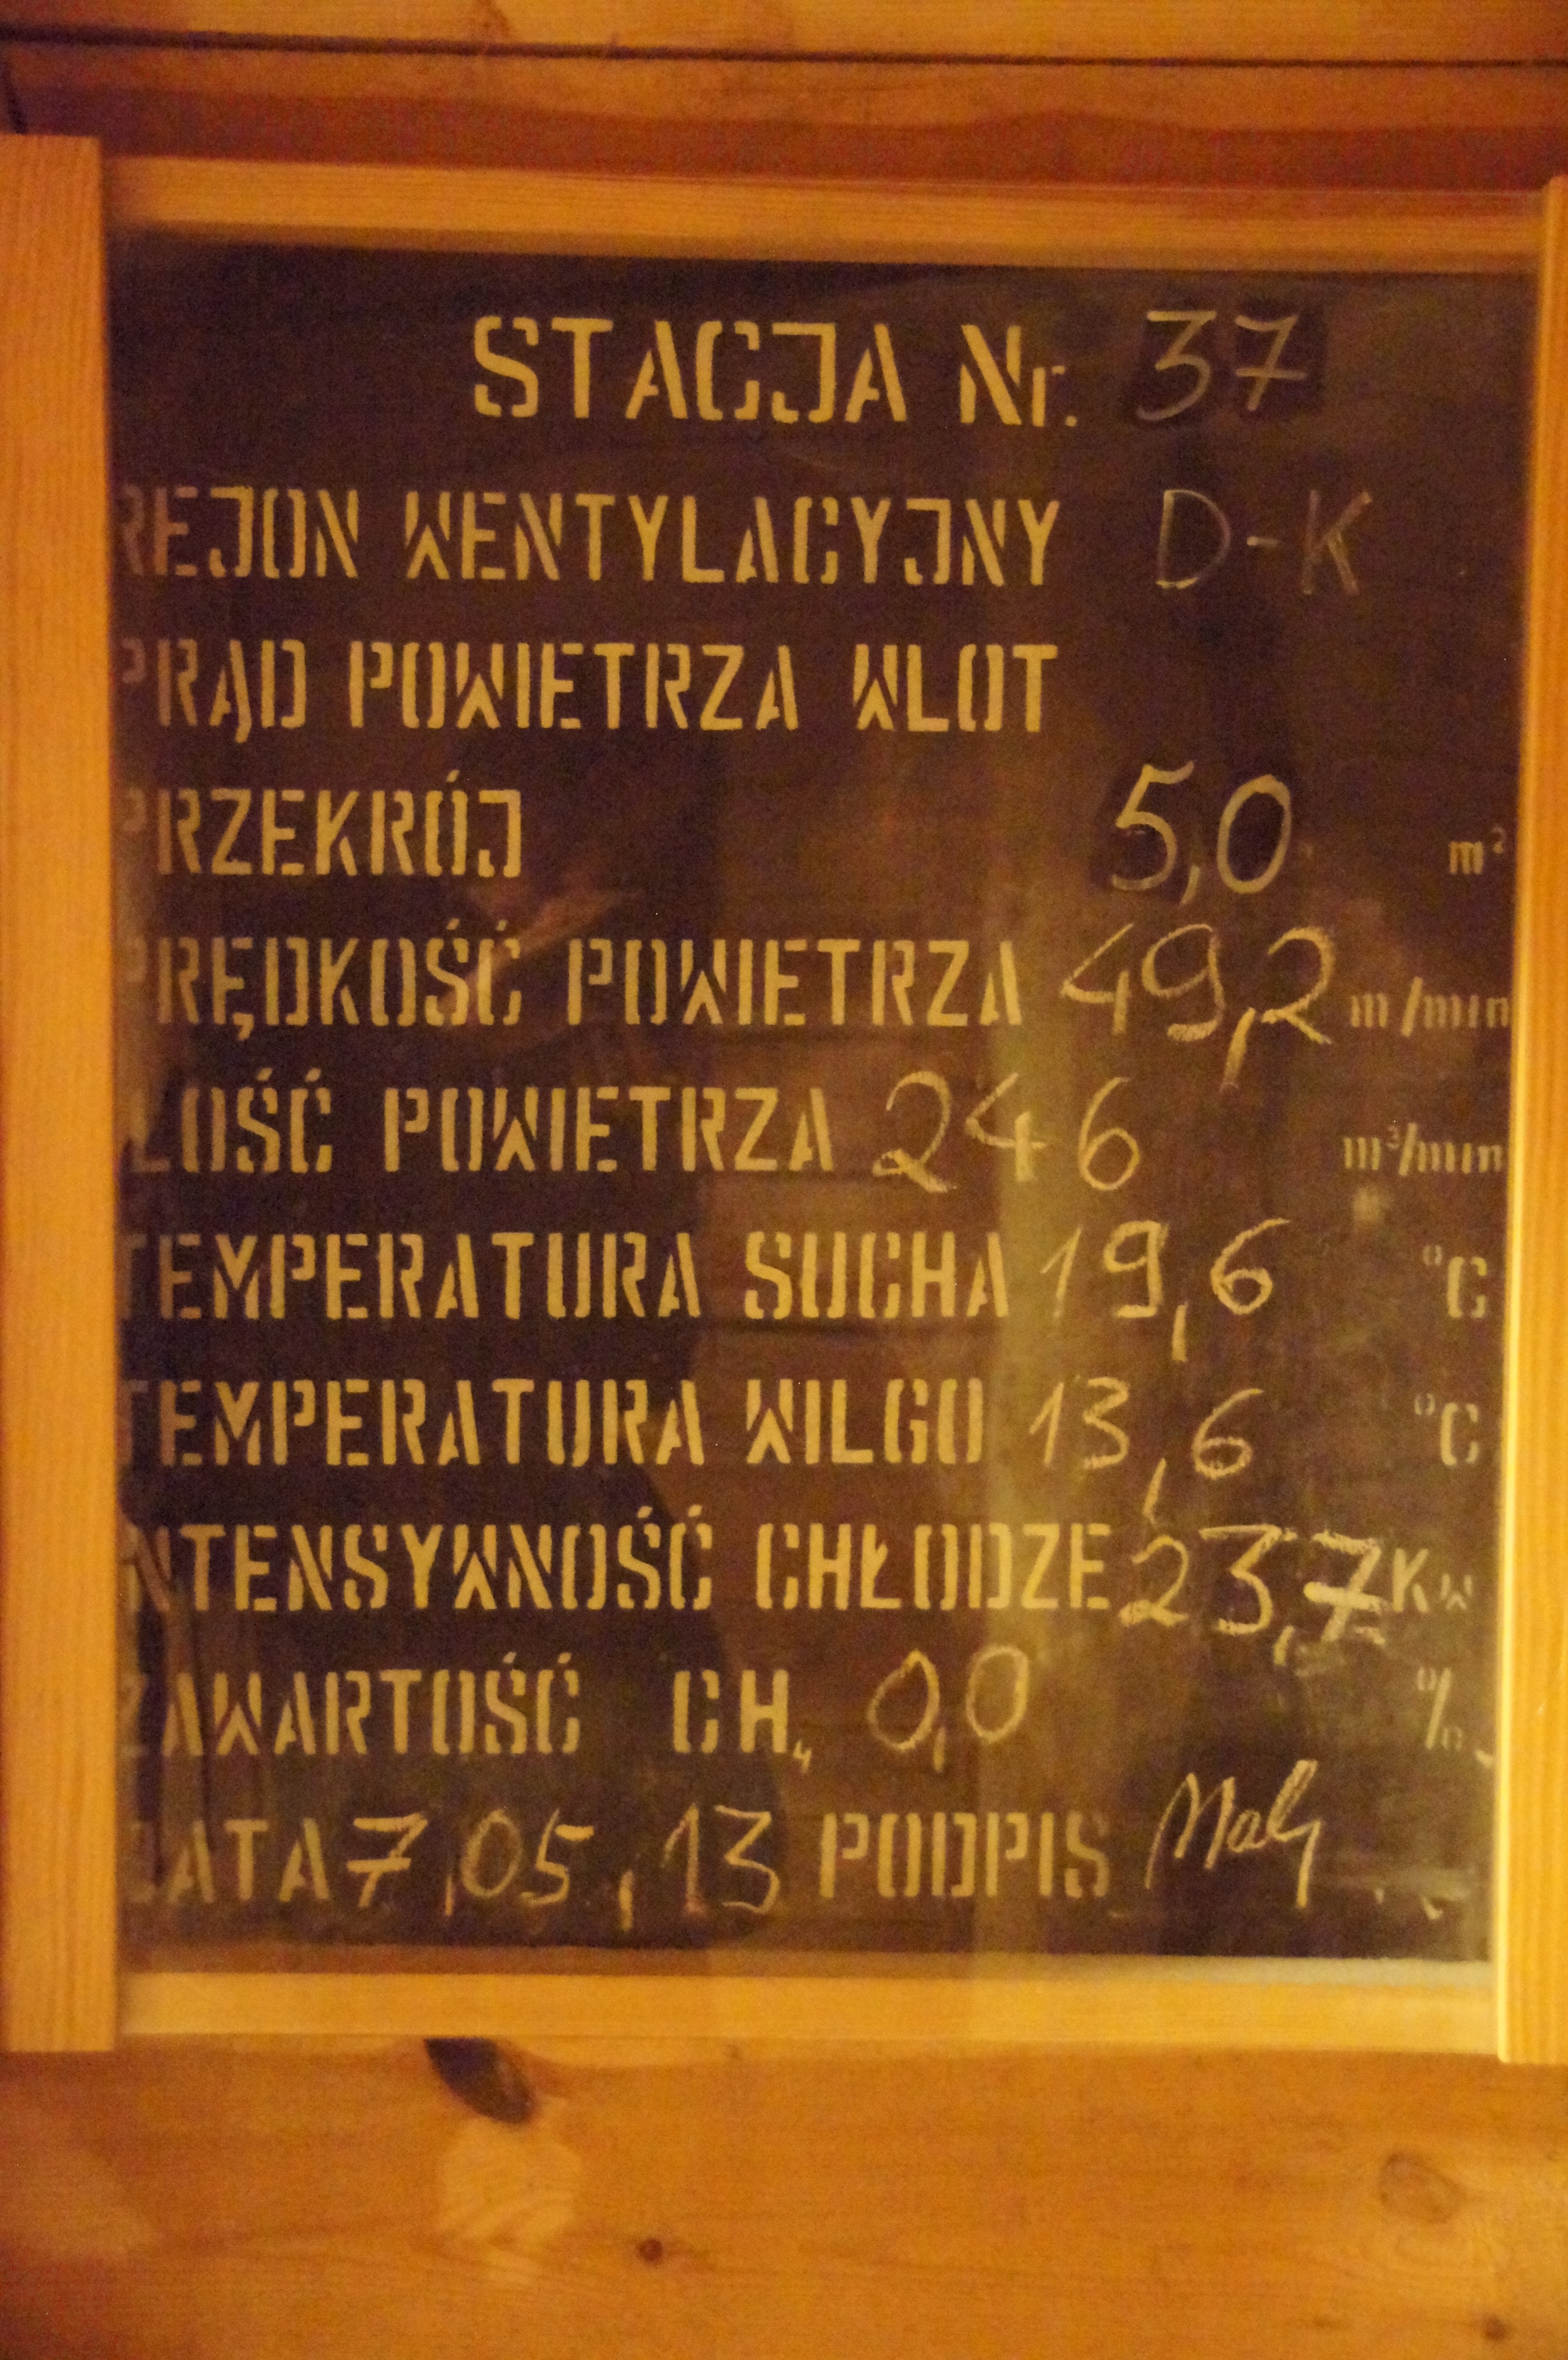 STACJA Nr. 37
REJON WENTYLACYJNY D-K
PRĄD POWIETRZA WLOT
PRZEKRÓJ 5,0 m²
PRĘDKOŚĆ POWIETRZA 49,2 m/min
ILOŚĆ POWIETRZA 246 m³/min
TEMPERATURA SUCHA 19,6 °C
TEMPERATURA WILGO 13,6 °C
INTENSYWNOŚĆ CHŁODZE 23,7 KW
ZAWARTOŚĆ CH₄ 0,0 %
DATA 7,05,13 PODPIS